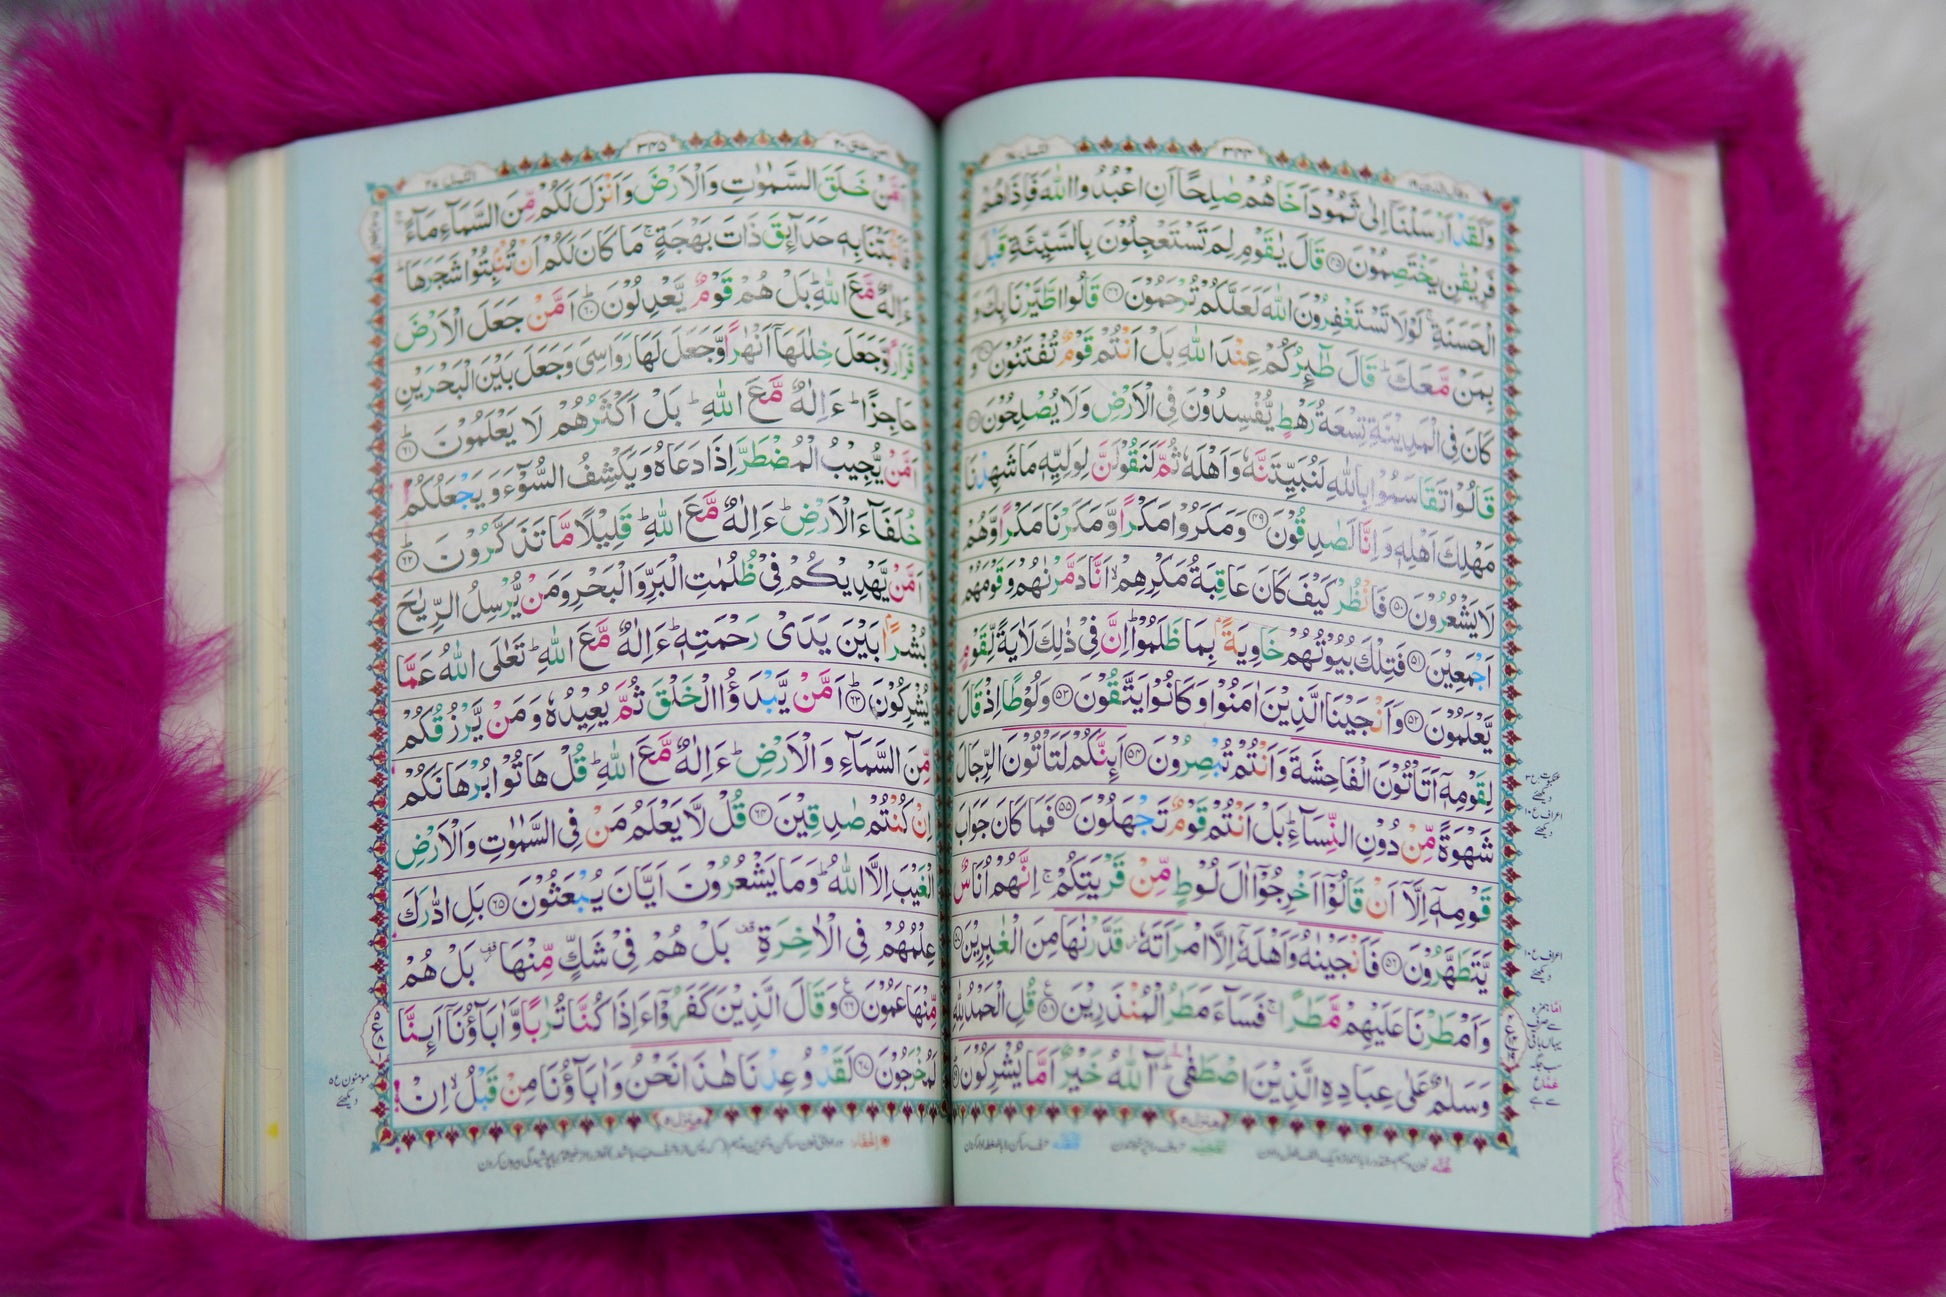 النمل ٢٧
٣٤٤
وقال الذین ١٩
وَلَقَدْ اَرْسَلْنَاۤ اِلٰى ثَمُوْدَ اَخَاهُمْ صٰلِحًا اَنِ اعْبُدُوا اللّٰهَ فَاِذَا هُمْ
فَرِیْقٰنِ یَخْتَصِمُوْنَ ﴿۴۵﴾ قَالَ یٰقَوْمِ لِمَ تَسْتَعْجِلُوْنَ بِالسَّیِّئَةِ قَبْلَ
الْحَسَنَةِ ۚ لَوْلَا تَسْتَغْفِرُوْنَ اللّٰهَ لَعَلَّكُمْ تُرْحَمُوْنَ ﴿۴۶﴾ قَالُوا اطَّیَّرْنَا بِكَ وَ
بِمَنْ مَّعَكَ ؕ قَالَ طٰٓئِرُكُمْ عِنْدَ اللّٰهِ بَلْ اَنْتُمْ قَوْمٌ تُفْتَنُوْنَ ﴿۴۷﴾ وَ
كَانَ فِی الْمَدِیْنَةِ تِسْعَةُ رَهْطٍ یُّفْسِدُوْنَ فِی الْاَرْضِ وَلَا یُصْلِحُوْنَ ﴿۴۸﴾
قَالُوْا تَقَاسَمُوْا بِاللّٰهِ لَنُبَیِّتَنَّهٗ وَاَهْلَهٗ ثُمَّ لَنَقُوْلَنَّ لِوَلِیِّهٖ مَا شَهِدْنَا
مَهْلِكَ اَهْلِهٖ وَ اِنَّا لَصٰدِقُوْنَ ﴿۴۹﴾ وَمَكَرُوْا مَكْرًا وَّ مَكَرْنَا مَكْرًا وَّهُمْ
لَا یَشْعُرُوْنَ ﴿۵۰﴾ فَانْظُرْ كَیْفَ كَانَ عَاقِبَةُ مَكْرِهِمْ ۙ اَنَّا دَمَّرْنٰهُمْ وَقَوْمَهُمْ
اَجْمَعِیْنَ ﴿۵۱﴾ فَتِلْكَ بُیُوْتُهُمْ خَاوِیَةًۢ بِمَا ظَلَمُوْا ؕ اِنَّ فِیْ ذٰلِكَ لَاٰیَةً لِّقَوْمٍ
یَّعْلَمُوْنَ ﴿۵۲﴾ وَاَنْجَیْنَا الَّذِیْنَ اٰمَنُوْا وَ كَانُوْا یَتَّقُوْنَ ﴿۵۳﴾ وَلُوْطًا اِذْ قَالَ
لِقَوْمِهٖۤ اَتَاْتُوْنَ الْفَاحِشَةَ وَاَنْتُمْ تُبْصِرُوْنَ ﴿۵۴﴾ اَىِٕنَّكُمْ لَتَاْتُوْنَ الرِّجَالَ
شَهْوَةً مِّنْ دُوْنِ النِّسَآءِ ؕ بَلْ اَنْتُمْ قَوْمٌ تَجْهَلُوْنَ ﴿۵۵﴾ فَمَا كَانَ جَوَابَ
قَوْمِهٖۤ اِلَّاۤ اَنْ قَالُوْۤا اَخْرِجُوْۤا اٰلَ لُوْطٍ مِّنْ قَرْیَتِكُمْ ۚ اِنَّهُمْ اُنَاسٌ
یَّتَطَهَّرُوْنَ ﴿۵۶﴾ فَاَنْجَیْنٰهُ وَاَهْلَهٗۤ اِلَّا امْرَاَتَهٗ ؗ قَدَّرْنٰهَا مِنَ الْغٰبِرِیْنَ ﴿۵۷﴾
وَاَمْطَرْنَا عَلَیْهِمْ مَّطَرًا ۚ فَسَآءَ مَطَرُ الْمُنْذَرِیْنَ ﴿۵۸﴾ قُلِ الْحَمْدُ لِلّٰهِ
وَسَلٰمٌ عَلٰى عِبَادِهِ الَّذِیْنَ اصْطَفٰى ؕ آٰللّٰهُ خَیْرٌ اَمَّا یُشْرِكُوْنَ ﴿۵۹﴾
النمل ٢٧
٣٤٥
امن خلق ٢٠
اَمَّنْ خَلَقَ السَّمٰوٰتِ وَالْاَرْضَ وَاَنْزَلَ لَكُمْ مِّنَ السَّمَآءِ مَآءً ۚ
فَاَنْۢبَتْنَا بِهٖ حَدَآىِٕقَ ذَاتَ بَهْجَةٍ ۚ مَا كَانَ لَكُمْ اَنْ تُنْۢبِتُوْا شَجَرَهَا ؕ
ءَاِلٰهٌ مَّعَ اللّٰهِ ؕ بَلْ هُمْ قَوْمٌ یَّعْدِلُوْنَ ﴿۶۰﴾ اَمَّنْ جَعَلَ الْاَرْضَ
قَرَارًا وَّجَعَلَ خِلٰلَهَاۤ اَنْهٰرًا وَّجَعَلَ لَهَا رَوَاسِیَ وَجَعَلَ بَیْنَ الْبَحْرَیْنِ
حَاجِزًا ؕ ءَاِلٰهٌ مَّعَ اللّٰهِ ؕ بَلْ اَكْثَرُهُمْ لَا یَعْلَمُوْنَ ﴿۶۱﴾
اَمَّنْ یُّجِیْبُ الْمُضْطَرَّ اِذَا دَعَاهُ وَیَكْشِفُ السُّوْٓءَ وَیَجْعَلُكُمْ
خُلَفَآءَ الْاَرْضِ ؕ ءَاِلٰهٌ مَّعَ اللّٰهِ ؕ قَلِیْلًا مَّا تَذَكَّرُوْنَ ﴿۶۲﴾
اَمَّنْ یَّهْدِیْكُمْ فِیْ ظُلُمٰتِ الْبَرِّ وَالْبَحْرِ وَمَنْ یُّرْسِلُ الرِّیٰحَ
بُشْرًۢا بَیْنَ یَدَیْ رَحْمَتِهٖ ؕ ءَاِلٰهٌ مَّعَ اللّٰهِ ؕ تَعٰلَى اللّٰهُ عَمَّا
یُشْرِكُوْنَ ﴿۶۳﴾ اَمَّنْ یَّبْدَؤُا الْخَلْقَ ثُمَّ یُعِیْدُهٗ وَمَنْ یَّرْزُقُكُمْ
مِّنَ السَّمَآءِ وَ الْاَرْضِ ؕ ءَاِلٰهٌ مَّعَ اللّٰهِ ؕ قُلْ هَاتُوْا بُرْهَانَكُمْ
اِنْ كُنْتُمْ صٰدِقِیْنَ ﴿۶۴﴾ قُلْ لَّا یَعْلَمُ مَنْ فِی السَّمٰوٰتِ وَالْاَرْضِ
الْغَیْبَ اِلَّا اللّٰهُ ؕ وَمَا یَشْعُرُوْنَ اَیَّانَ یُبْعَثُوْنَ ﴿۶۵﴾ بَلِ ادّٰرَكَ
عِلْمُهُمْ فِی الْاٰخِرَةِ ۫ بَلْ هُمْ فِیْ شَكٍّ مِّنْهَا ۫ بَلْ هُمْ
مِّنْهَا عَمُوْنَ ﴿۶۶﴾ وَقَالَ الَّذِیْنَ كَفَرُوْۤا ءَاِذَا كُنَّا تُرٰبًا وَّاٰبَآؤُنَاۤ اَىِٕنَّا
لَمُخْرَجُوْنَ ﴿۶۷﴾ لَقَدْ وُعِدْنَا هٰذَا نَحْنُ وَاٰبَآؤُنَا مِنْ قَبْلُ ۙ اِنْ